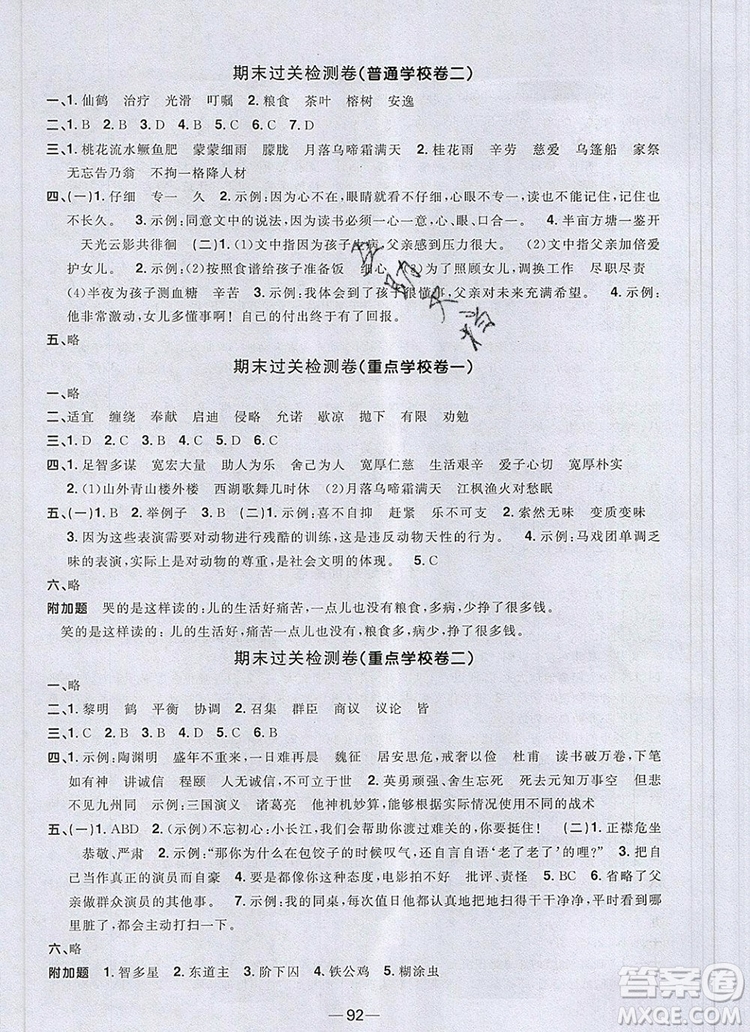 期末过关检测卷(普通学校卷二)
一、1.仙鹤 治疗 光滑 叮嘱 2.粮食 茶叶 榕树 安逸
二、1.D 2.B 3.B 4.D 5.A 6.C 7.D
三、1.桃花流水鳜鱼肥 蒙蒙细雨 朦胧 月落乌啼霜满天 2.桂花雨 辛劳 慈爱 乌篷船 家祭
无忘告乃翁 不拘一格降人材
四、(一)1.仔细 专一 久 2.示例:因为心不在,眼睛就看不仔细,心不专一,读也不能记住,记住也
不长久。 3.示例:同意文中的说法,因为读书必须一心一意,心、眼、口合一。 4.半亩方塘一鉴开
天光云影共徘徊 (二)1.(1)文中指因为孩子 病,父亲感到压力很大。 (2)文中指父亲加倍爱
护女儿。 2.(1)按照食谱给孩子准备饭 细心 (3)为了照顾女儿,调换工作 尽职尽责
(4)半夜为孩子测血糖 辛苦 3.示例:我体会到了孩子很懂事,父亲对未来充满希望。 4.示例:
他非常激动,女儿多懂事啊!自己的付出终于有了回报。
五、略
期末过关检测卷(重点学校卷一)
一、略
二、适宜 缠绕 奉献 启迪 侵略 允诺 歇凉 抛下 有限 劝勉
三、1.D 2.B 3.C 4.A 5.B 6.C
四、1.足智多谋 宽宏大量 助人为乐 舍己为人 宽厚仁慈 生活艰辛 爱子心切 宽厚朴实
2.(1)山外青山楼外楼 西湖歌舞几时休 (2)月落乌啼霜满天 江枫渔火对愁眠
五、(一)1.A 2.B 3.B 4.举例子 (二)1.示例:喜不自抑 赶紧 乐不可支 2.索然无味 变质变味
3.因为这些表演需要对动物进行残酷的训练,这是违反动物天性的行为。 4.示例:马戏团单调乏
味的表演,对动物的尊重,是社会文明的体现。 5.C
六、略
附加题 哭的是这样读的:儿的生活好痛苦,一点儿也没有粮食,多病,少挣了很多钱。
笑的是这样读的:儿的生活好,痛苦一点儿也没有,粮食多,病少,挣了很多钱。
期末过关检测卷(重点学校卷二)
一、略
二、1.黎明 鹤 平衡 协调 2.召集 群臣 商议 议论 皆
三、1.C 2.B 3.C 4.A 5.B 6.B
四、1.示例:陶渊明 盛年不重来,一日难再晨 魏征 居安思危,戒奢以俭 杜甫 读书破万卷,下笔
如有神 讲诚信 程颐 人无忠信,不可立于世 2.英勇顽强、舍生忘死 死去元知万事空 但悲
不见九州同 示例:三国演义 诸葛亮 他神机妙算,能够根据实际情况使用不同的策略
五、(一)1.ABD 2.(示例)不忘初心:小长江,我们都挺过难关的,你要挺住! (二)1.正襟危坐
恭敬、严肃 2.示例:“那你为什么在包饺子的时候叹气,还自言自语‘老了老了’的哩?” 3.为自
己当作真正的演员而自豪 4.要是咱们家都是您这种态度,电影拍不成 批评、责怪 5.BC 6.省略了父
亲做群众演员的其他事。 7.示例:我想成为一名优秀的值日生。每次值日都把地扫得干干净净,看见哪
里脏了,都会主动打扫一下。
六、略
附加题 1.智多星 2.东道主 3.阶下囚 4.铁公鸡 5.糊涂虫
—92—
答案圈
MXQE.COM